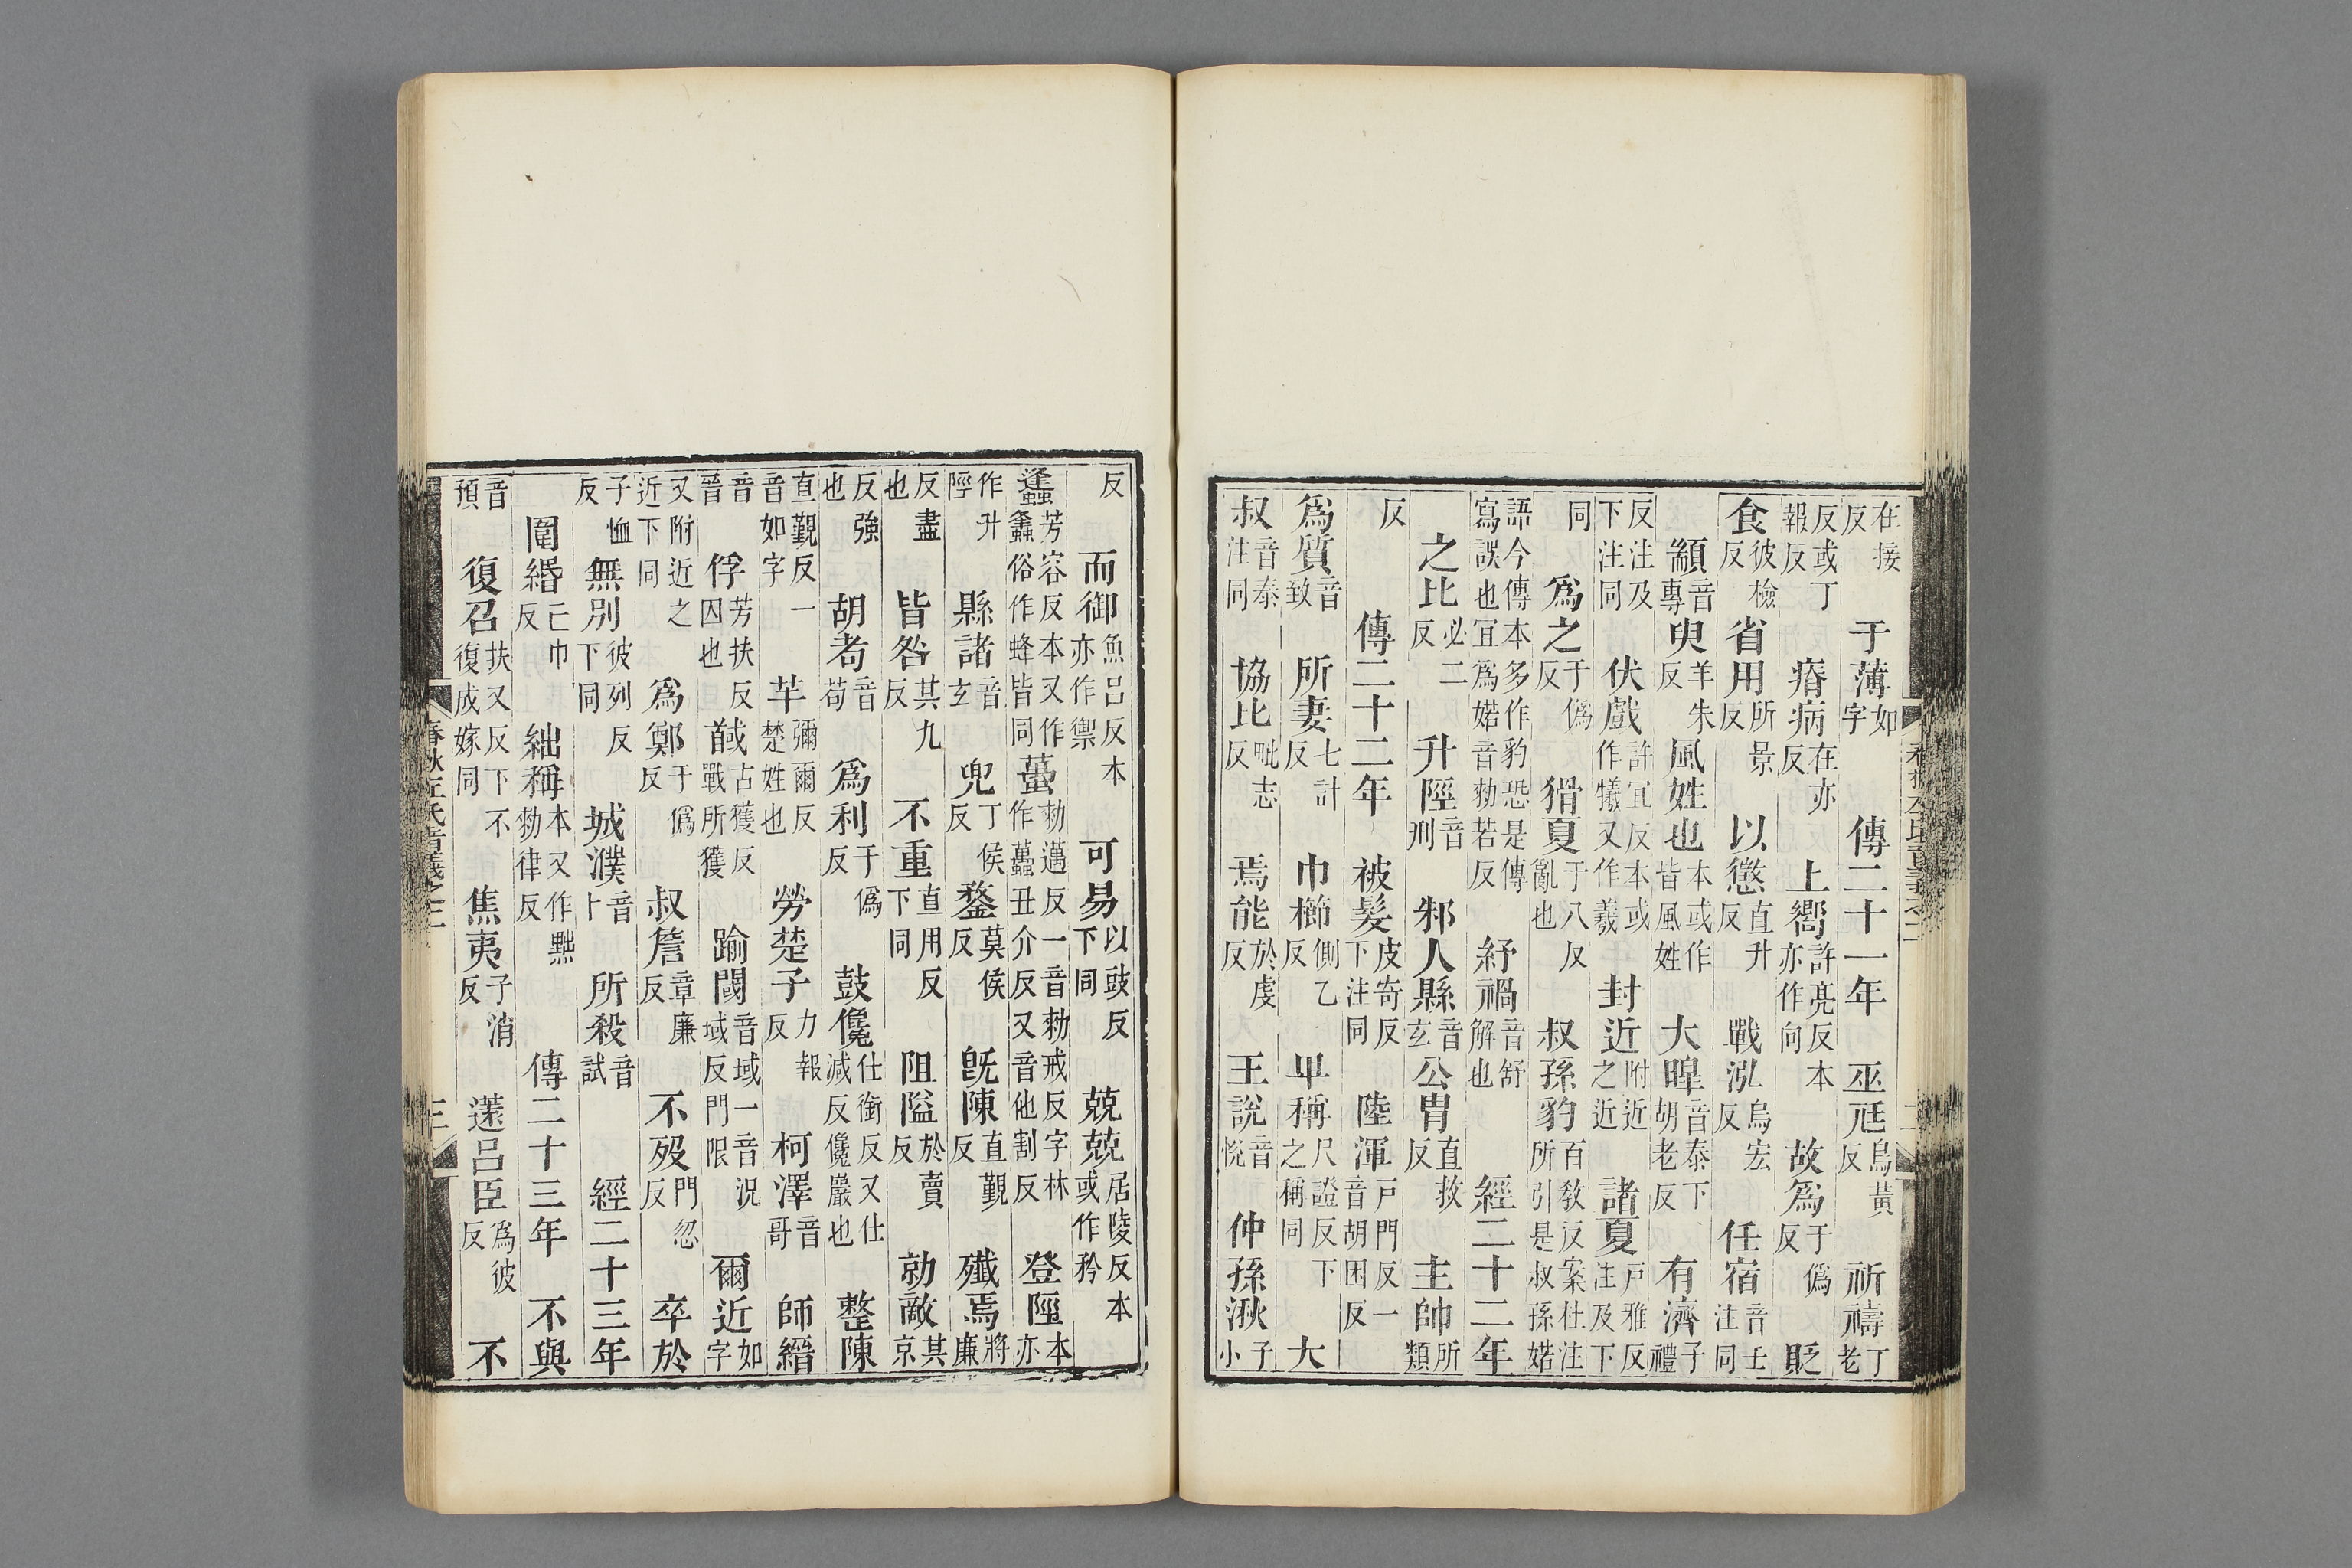 在接反 于薄如字 傳二十一年 巫尫烏黃反 祈禱丁老
反或丁報反 瘠病在亦反 上嚮許亮反本亦作向 故爲于僞反 貶
食彼檢反 省用所景反 以懲直升反 戰泓烏宏反 任宿音壬注同
顓音專 臾羊朱反 風姓也本或作皆風姓 大暤音泰下胡老反 有濟子禮
反注及下注同 伏戲許冝反本或作犧又作羲 封近附近之近 諸夏戸雅反注及下
同 爲之于僞反 猾夏于八反亂也 叔孫豹百敎反案杜注所引是叔孫婼
語今傳本多作豹恐是傳寫誤也冝爲婼音勑若反 紓禍音舒解也 經二十二年
之比必二反 升陘音刑 邾人縣音玄 公冑直救反 主帥所類
反 傳二十二年 被髮皮寄反下注同 陸渾戸門反一音胡困反
爲質音致 所妻七計反 巾櫛側乙反 卑稱尺證反下之稱同 大
叔音泰注同 協比毗志反 焉能於虔反 王說音悅 仲孫湫子小
反 而御魚呂反本亦作禦 可易以豉反下同 兢兢居陵反本或作矜
蠭芳容反本又作蠡俗作蜂皆同 蠆勑邁反一音勑戒反字林作蠆丑介反又音他割反 登陘本亦
作升陘 縣諸音玄 兜丁侯反 鍪莫侯反 旣陳直覲反 殲焉將廉
反盡也 皆咎其九反 不重直用反下同 阻隘於賣反 勍敵其京
反強也 胡耇音苟 爲利于僞反 鼓儳仕銜反又仕減反儳巖也 整陳
直覲反一音如字 芊彌爾反楚姓也 勞楚子力報反 柯澤音哥 師縉
音晉 俘芳扶反囚也 馘古獲反戰所獲 踰閾音域一音況域反門限 爾近如字
又附近之近下同 爲鄭于僞反 叔詹章廉反 不歿門忽反 卒於
子恤反 無別彼列反下同 城濮音卜 所殺音試 經二十三年
圍緡亡巾反 絀稱本又作黜勑律反 傳二十三年 不與
音預 復召扶又反下不復成嫁同 焦夷子消反 薳呂臣爲彼反 不
春秋左氏音義之二 三